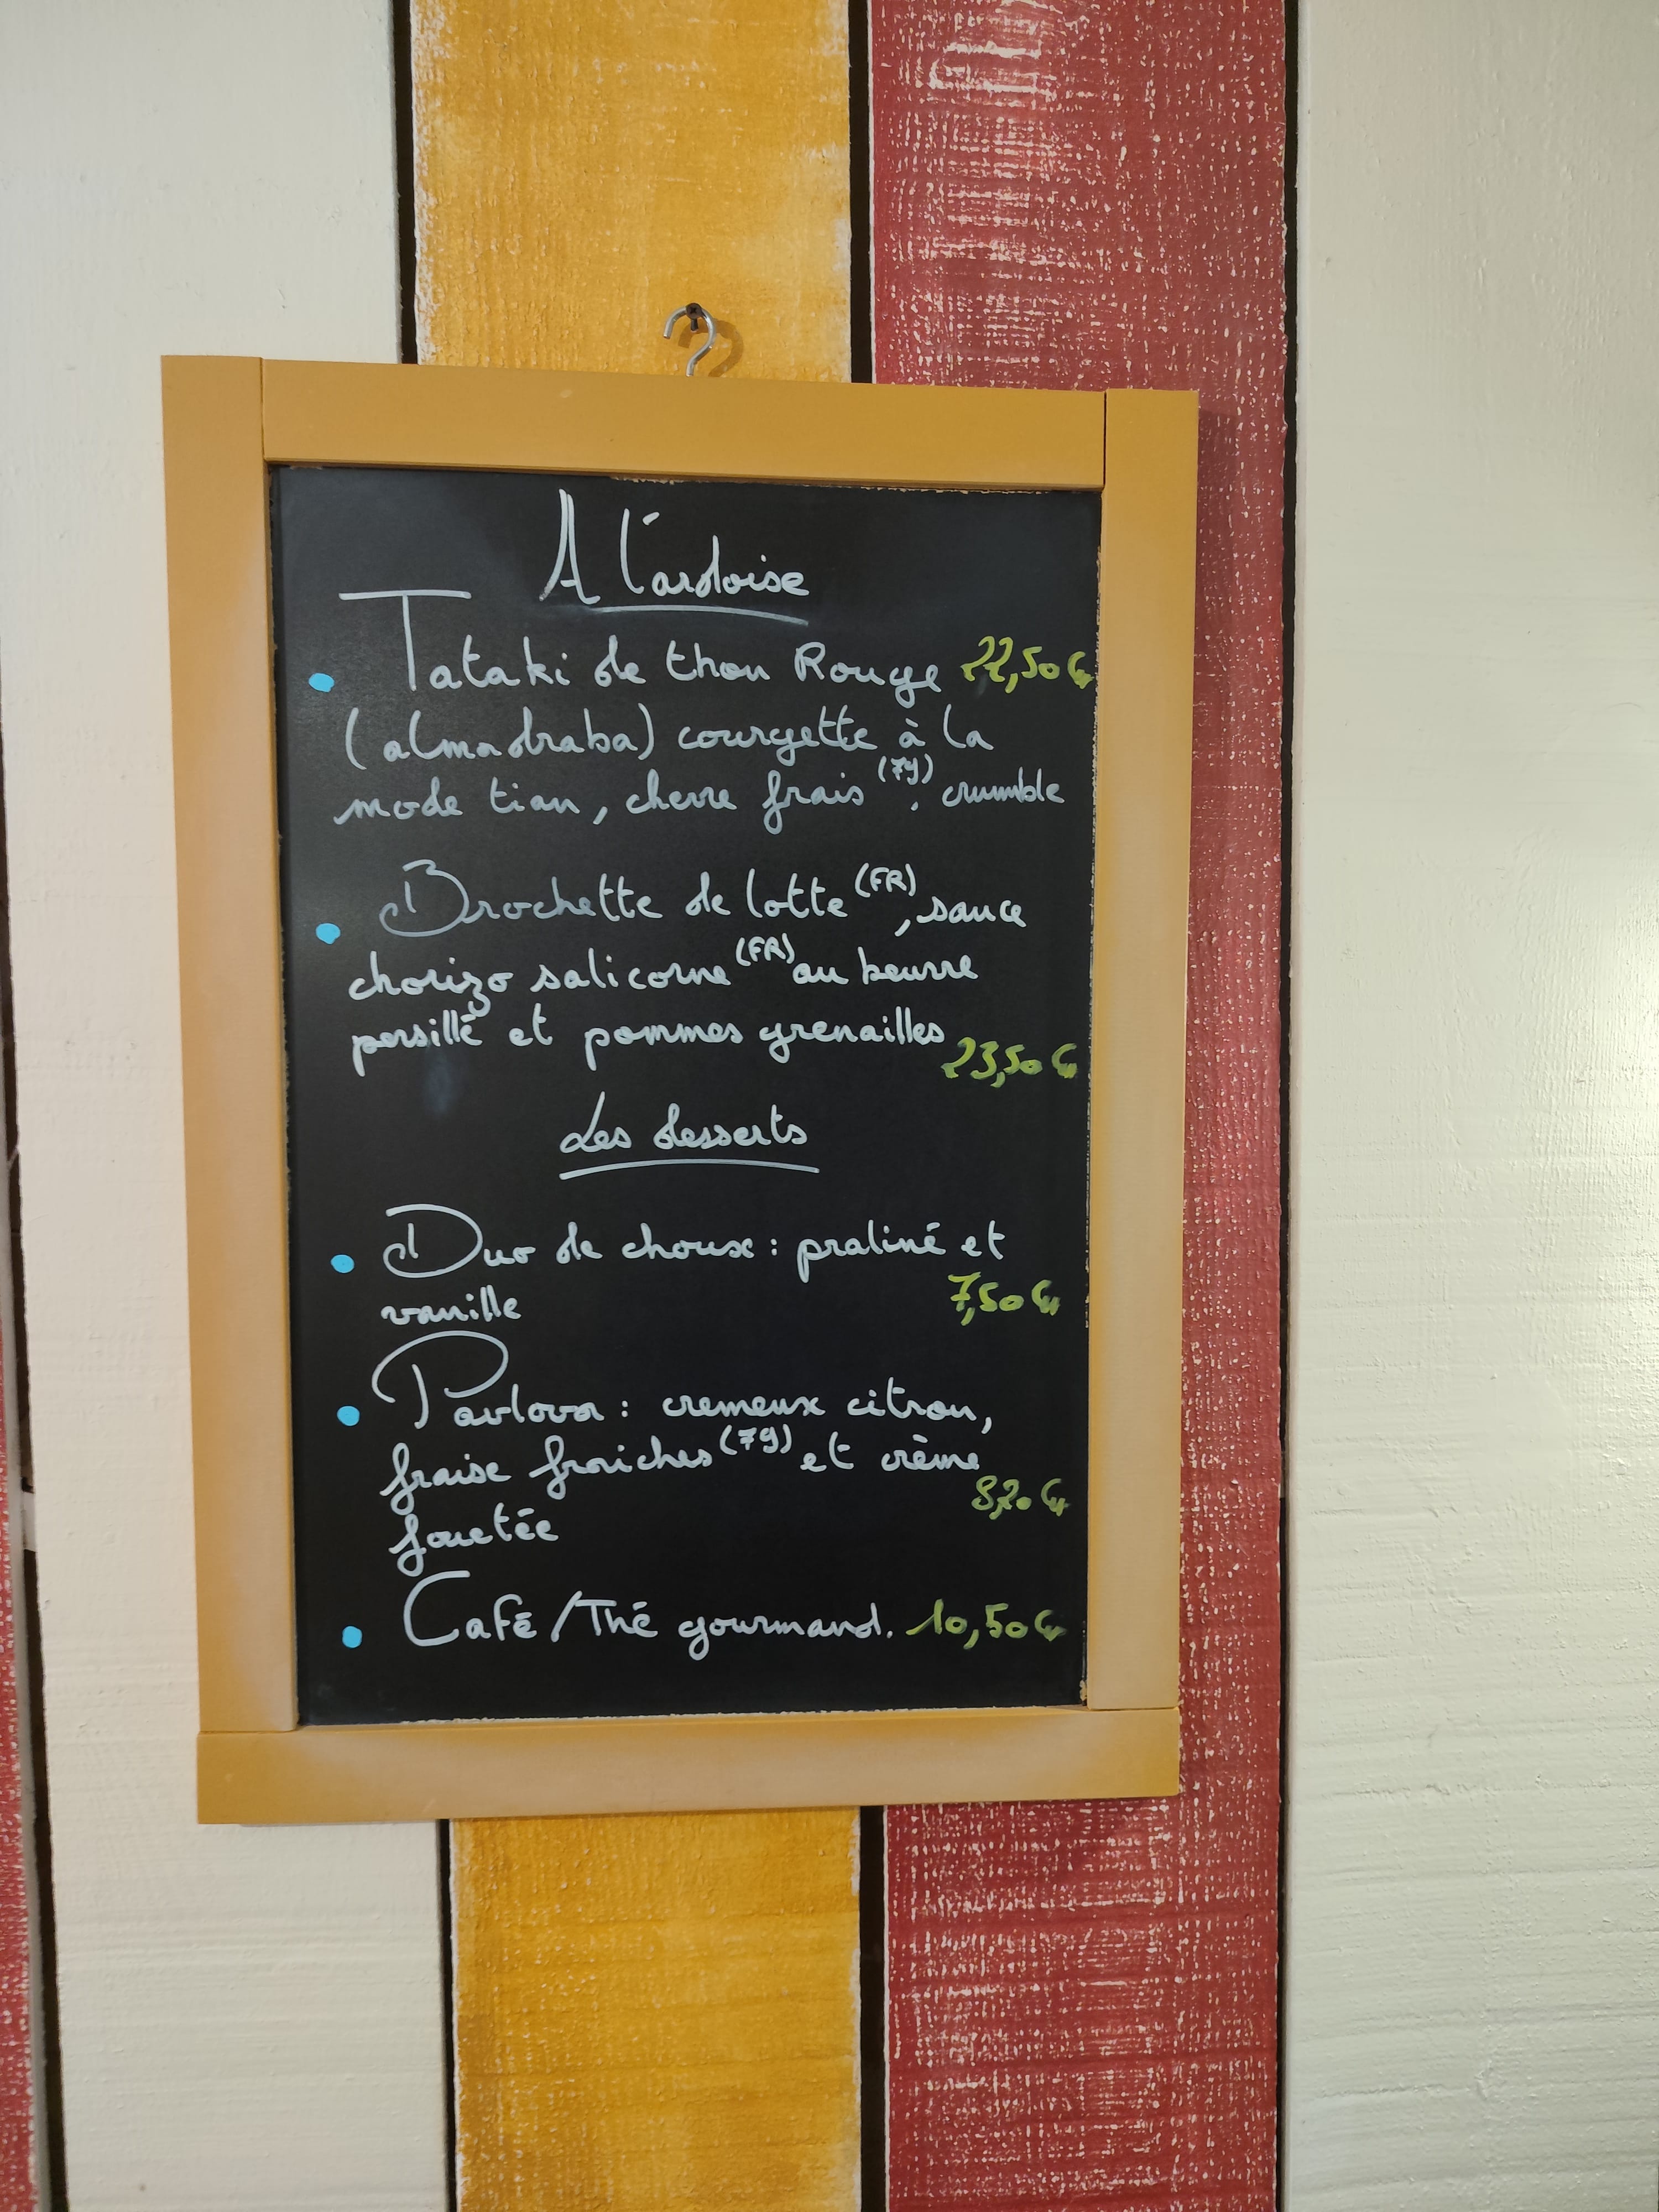 A l'ardoise
Tataki de thon Rouge 22,50€
(almadraba) courgette à la
mode tian, chevre frais (79). crumble
Brochette de lotte (FR), sauce
chorizo salicorne (FR) au beurre
persillé et pommes grenailles
23,50€
Les desserts
Duo de choux : praliné et
vanille 7,50€
Pavlova : cremeux citron,
fraise fraiches (79) et crème
8,20€
fouetée
Café/Thé gourmand. 10,50€